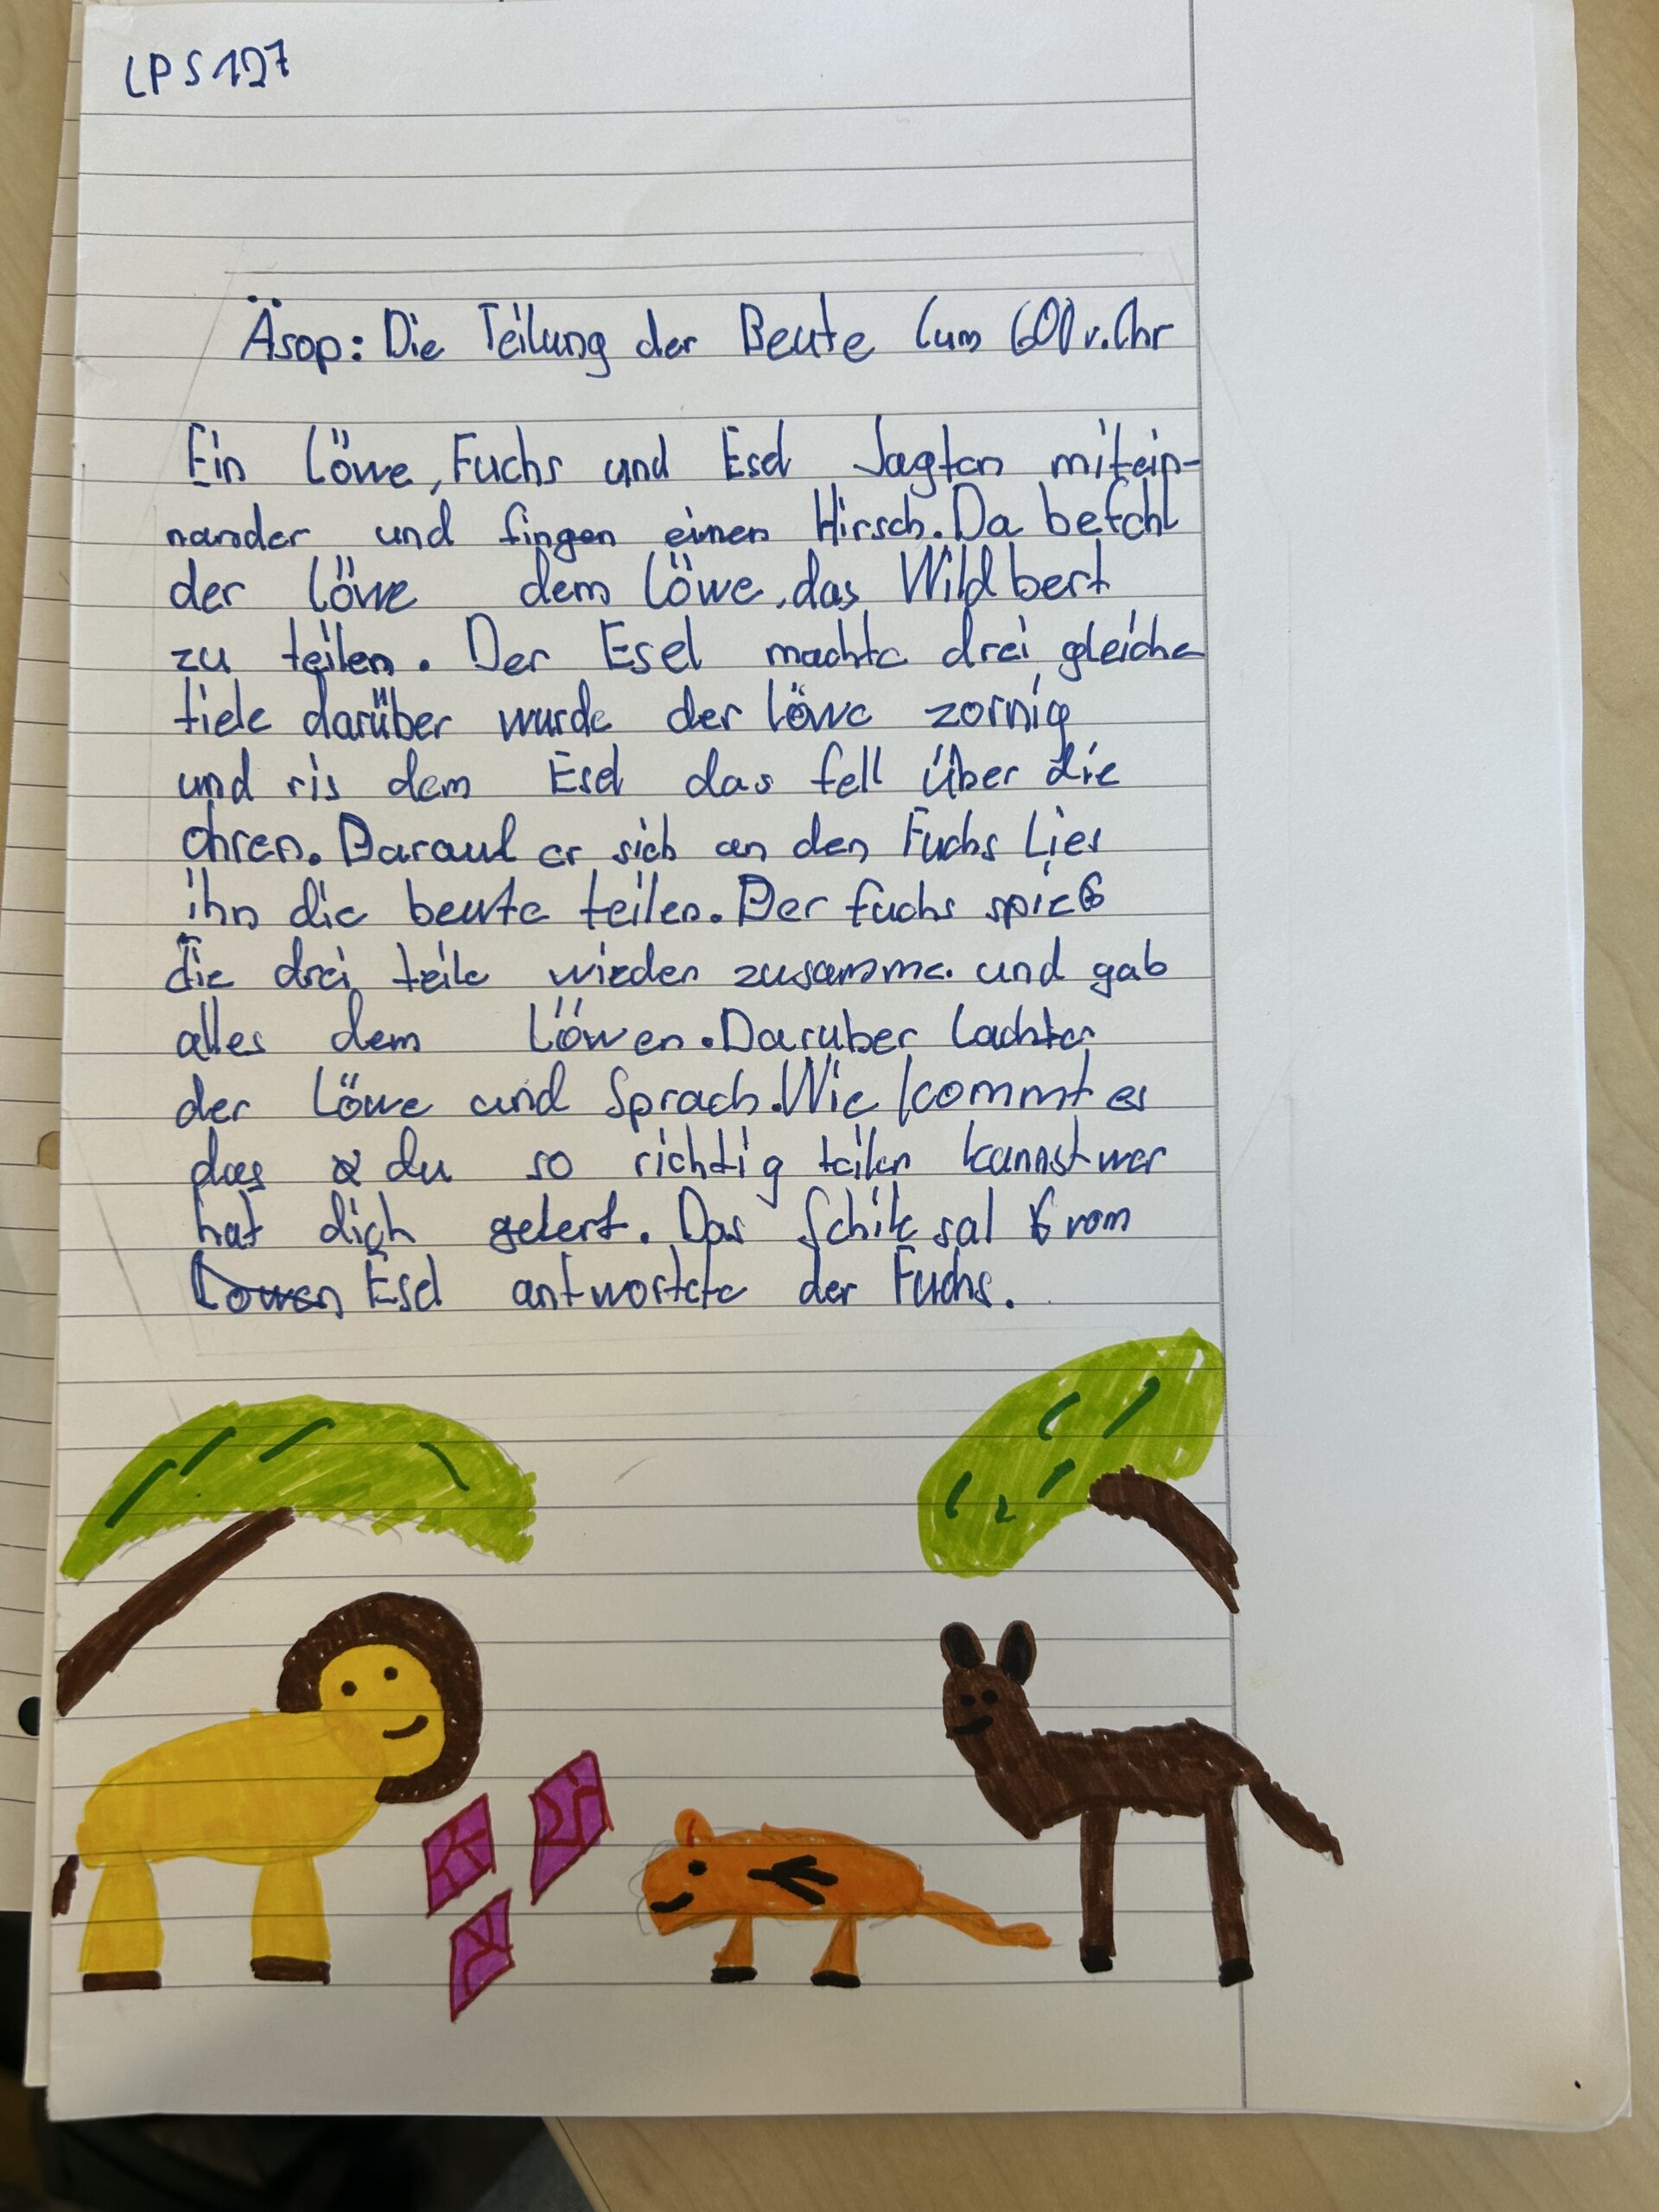 LPS 127
Äsop: Die Teilung der Beute (um 600 v. Chr
Ein Löwe, Fuchs und Esel Jagten mitein-
nander und fingen einen Hirsch. Da befehl
der Löwe dem Löwe, das Wildbert
zu teilen. Der Esel machte drei gleiche
tiele darüber wurde der löwe zornig
und ris dem Esel das fell über die
ohren. Darauf er sich an den Fuchs Lies
ihn die beute teilen. Der fuchs spieß
die drei teile wieder zusamme. und gab
alles dem Löwen. Daruber lachter
der Löwe und Sprach. Wie kommt es
das du so richtig teilen kannst wer
hat dich gelert. Das Schiksal vom
Esel antwortete der Fuchs.